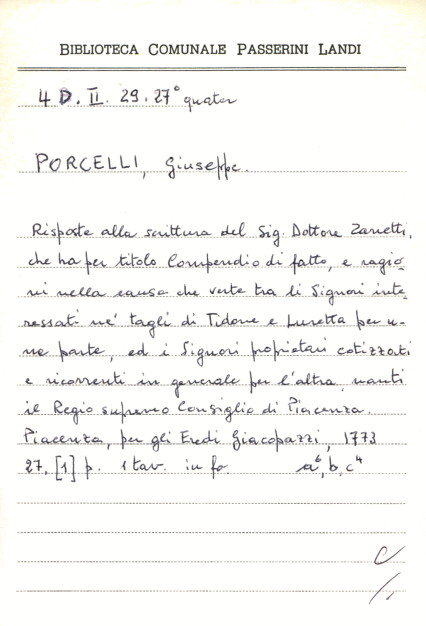 BIBLIOTECA COMUNALE PASSERINI LANDI
4 D. II. 29. 27° quater
PORCELLI, Giuseppe.
Risposte alla scrittura del Sig. Dottore Zanetti,
che ha per titolo Compendio di fatto, e ragio_
ni nella causa che verte tra li Signori inte_
ressati ne' tagli di Tidone e Luretta per u_
na parte, ed i Signori proprietari cotizzati
e ricorrenti in generale per l'altra nanti
il Regio supremo Consiglio di Piacenza.
Piacenza, per gli Eredi Giacopazzi, 1773
27, [1] p. 1 tav. in fo. a⁶, b, c⁴